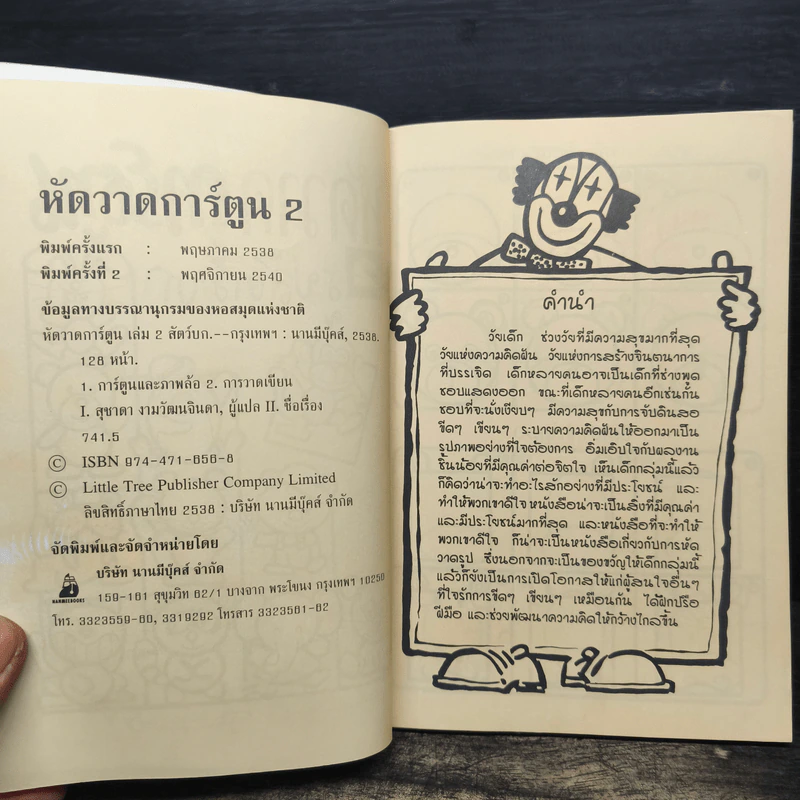 หัดวาดการ์ตูน 2
พิมพ์ครั้งแรก : พฤษภาคม 2538
พิมพ์ครั้งที่ 2 : พฤศจิกายน 2540
ข้อมูลทางบรรณานุกรมของหอสมุดแห่งชาติ
หัดวาดการ์ตูน เล่ม 2 สัตว์บก.--กรุงเทพฯ : นานมีบุ๊คส์, 2538.
128 หน้า.
1. การ์ตูนและภาพล้อ 2. การวาดเขียน
I. สุชาดา งามวัฒนจินดา, ผู้แปล II. ชื่อเรื่อง
741.5
© ISBN 974-471-656-8
© Little Tree Publisher Company Limited
ลิขสิทธิ์ภาษาไทย 2538 : บริษัท นานมีบุ๊คส์ จำกัด
จัดพิมพ์และจัดจำหน่ายโดย
บริษัท นานมีบุ๊คส์ จำกัด
NANMEEBOOKS 159-161 สุขุมวิท 62/1 บางจาก พระโขนง กรุงเทพฯ 10250
โทร. 3323559-60, 3319292 โทรสาร 3323561-62
คำนำ
วัยเด็ก ช่วงวัยที่มีความสุขมากที่สุด
วัยแห่งความคิดฝัน วัยแห่งการสร้างจินตนาการ
ที่บรรเจิด เด็กหลายคนอาจเป็นเด็กที่ช่างพูด
ชอบแสดงออก ขณะที่เด็กหลายคนอีกเช่นกัน
ชอบที่จะนั่งเงียบๆ มีความสุขกับการจับดินสอ
ขีดๆ เขียนๆ ระบายความคิดฝันให้ออกมาเป็น
รูปภาพอย่างที่ใจต้องการ อิ่มเอิบใจกับผลงาน
ชิ้นน้อยที่มีคุณค่าต่อจิตใจ เห็นเด็กกลุ่มนี้แล้ว
ก็คิดว่าน่าจะทำอะไรสักอย่างที่มีประโยชน์ และ
ทำให้พวกเขาดีใจ หนังสือน่าจะเป็นสิ่งที่มีคุณค่า
และมีประโยชน์มากที่สุด และหนังสือที่จะทำให้
พวกเขาดีใจ ก็น่าจะเป็นหนังสือเกี่ยวกับการหัด
วาดรูป ซึ่งนอกจากจะเป็นของขวัญให้เด็กกลุ่มนี้
แล้วก็ยังเป็นการเปิดโอกาสให้แก่ผู้สนใจอื่นๆ
ที่ใจรักการขีดๆ เขียนๆ เหมือนกัน ได้ฝึกปรือ
ฝีมือ และช่วยพัฒนาความคิดให้กว้างไกลขึ้น